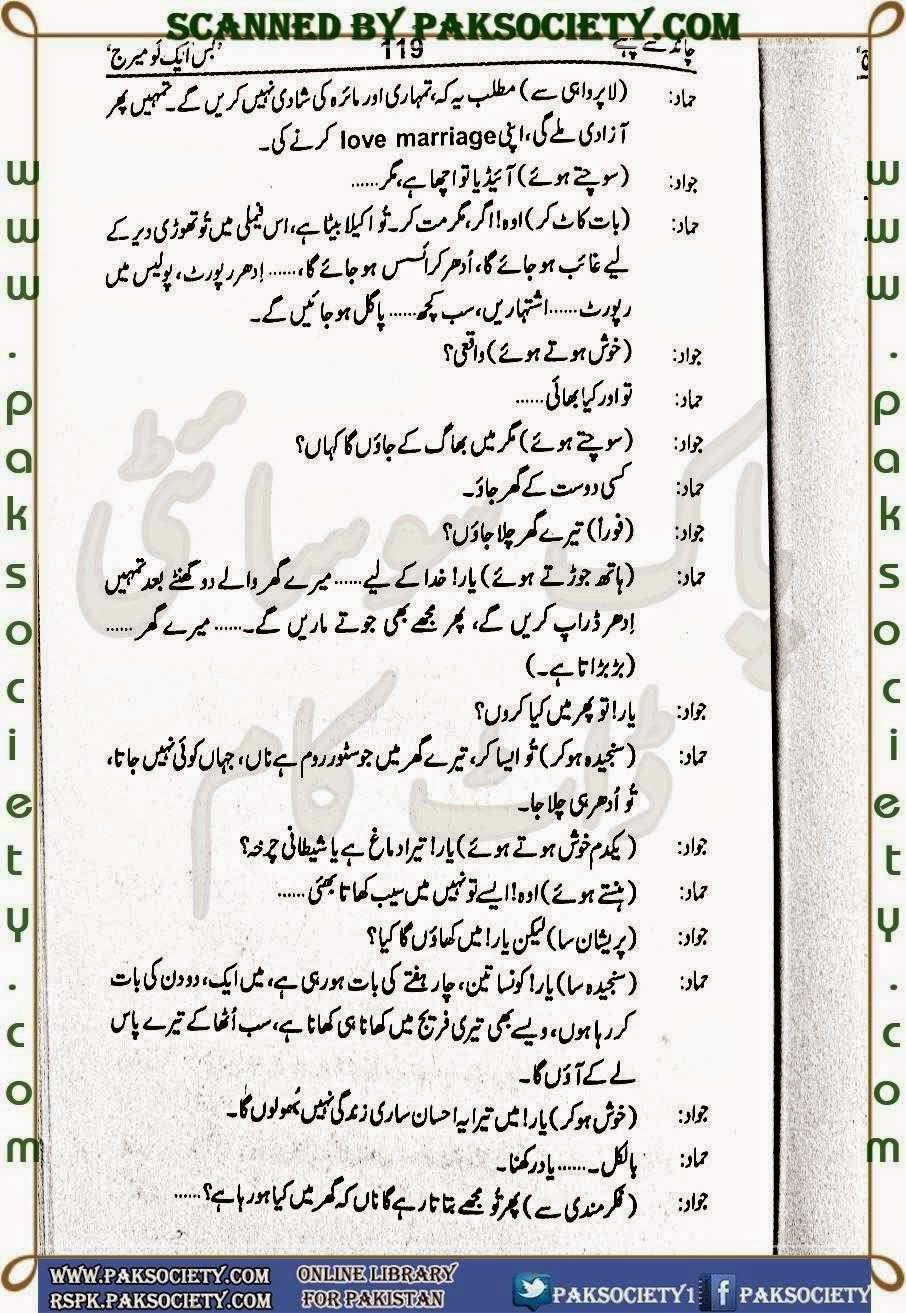 SCANNED BY PAKSOCIETY.COM
چاند سے پہے 119 'بس ایک لَو میرج'
حماد: (لاپرواہی سے) مطلب یہ کہ، تمہاری اور مائرہ کی شادی نہیں کریں گے۔ تمہیں پھر
آزادی ملے گی، اپنی love marriage کرنے کی۔
جواد: (سوچتے ہوئے) آئیڈیا تو اچھا ہے، مگر......
حماد: (بات کاٹ کر) اوہ! اگر، مگر مت کر۔ تُو اکیلا بیٹا ہے، اس فیملی میں تُو تھوڑی دیر کے
لیے غائب ہو جائے گا، اُدھر کرائسس ہو جائے گا،...... اِدھر رپورٹ، پولیس میں
رپورٹ...... اشتہاریں، سب کچھ...... پاگل ہو جائیں گے۔
جواد: (خوش ہوتے ہوئے) واقعی؟
حماد: تو اور کیا بھائی......
جواد: (سوچتے ہوئے) مگر میں بھاگ کے جاؤں گا کہاں؟
حماد: کسی دوست کے گھر جاؤ۔
جواد: (فوراً) تیرے گھر چلا جاؤں؟
حماد: (ہاتھ جوڑتے ہوئے) یار! خدا کے لیے...... میرے گھر والے دو گھنٹے بعد تمہیں
اِدھر ڈراپ کریں گے، پھر مجھے بھی جوتے ماریں گے۔...... میرے گھر ......
(بڑبڑاتا ہے۔)
جواد: یار! تو پھر میں کیا کروں؟
حماد: (سنجیدہ ہوکر) تُو ایسا کر، تیرے گھر میں جو سٹور روم ہے ناں، جہاں کوئی نہیں جاتا،
تُو اُدھر ہی چلا جا۔
جواد: (یکدم خوش ہوتے ہوئے) یار! تیرا دماغ ہے یا شیطانی چرخہ؟
حماد: (ہنستے ہوئے) اوہ! ایسے تو نہیں میں سیب کھاتا بھئی......
جواد: (پریشان سا) لیکن یار! میں کھاؤں گا کیا؟
حماد: (سنجیدہ سا) یار! کونسا تین، چار ہفتے کی بات ہو رہی ہے، میں ایک، دو دن کی بات
کر رہا ہوں، ویسے بھی تیری فریج میں کھانا ہی کھانا ہے، سب اُٹھا کے تیرے پاس
لے کے آؤں گا۔
جواد: (خوش ہوکر) یار! میں تیرا یہ احسان ساری زندگی نہیں بُھولوں گا۔
حماد: بالکل۔...... یاد رکھنا۔
جواد: (فکرمندی سے) پھر تُو مجھے بتاتا رہے گا ناں کہ گھر میں کیا ہو رہا ہے؟......
پاک سوسائٹی
ڈاٹ کام
www.paksociety.com
www.paksociety.com
WWW.PAKSOCIETY.COM ONLINE LIBRARY PAKSOCIETY1 PAKSOCIETY
RSPK.PAKSOCIETY.COM FOR PAKISTAN